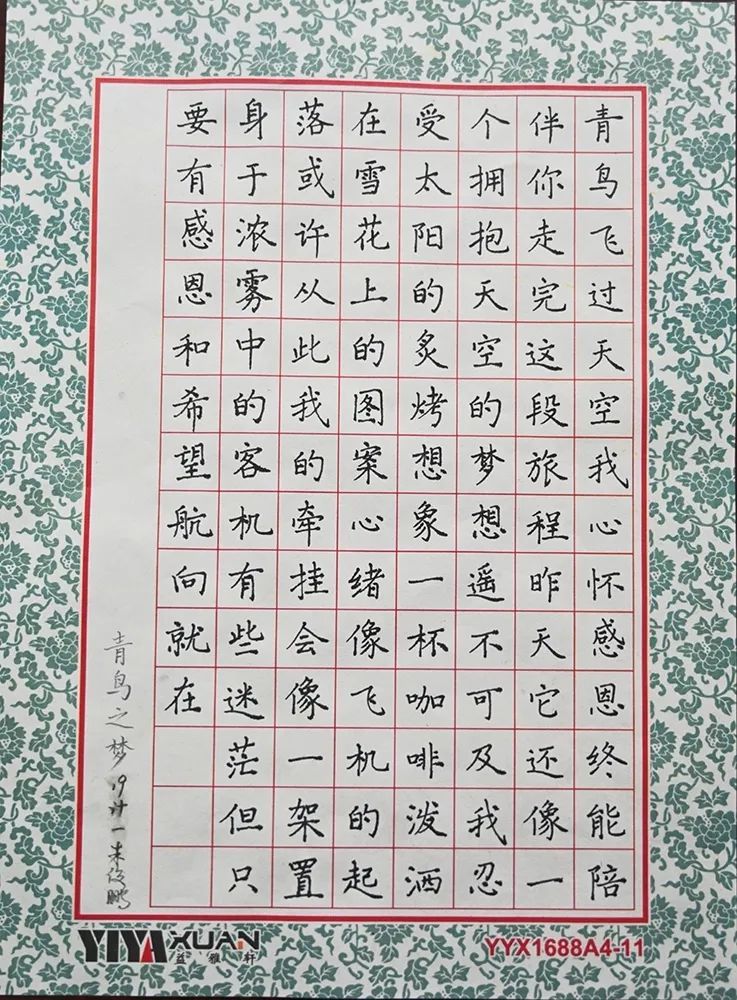 青鸟飞过天空我心怀感恩终能陪
伴你走完这段旅程昨天它还像一
个拥抱天空的梦想遥不可及我忍
受太阳的炙烤想象一杯咖啡泼洒
在雪花上的图案心绪像飞机的起
落或许从此我的牵挂会像一架置
身于浓雾中的客机有些迷茫但只
要有感恩和希望航向就在
青鸟之梦 19计一 朱俊鹏
YIYAXUAN
益雅轩
YYX1688A4-11